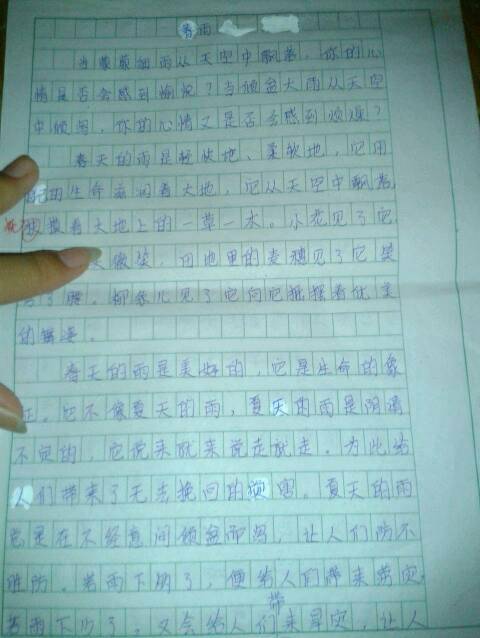 春雨
当蒙蒙细雨从天空中飘落，你的心
情是否会感到愉悦？当倾盆大雨从天空
中倾泻，你的心情又是否会感到烦燥？
春天的雨是轻快地、柔软地，它用
自己的生命滋润着大地，它从天空中飘落，
着大地上的一草一木。小花见了它
微笑，田地里的麦穗见了它笑
了腰，柳条儿见了它向它摇摆着优美
的舞姿。
春天的雨是美好的，它是生命的象
征。它不像夏天的雨，夏天的雨是阴晴
不定的，它说来就来说走就走。为此给
人们带来了无法挽回的损害。夏天的雨
总是在不经意间倾盆而泻，让人们防不
胜防。若雨下多了，便给人们带来涝灾，
若雨下少了。又会给人们带来旱灾，让人